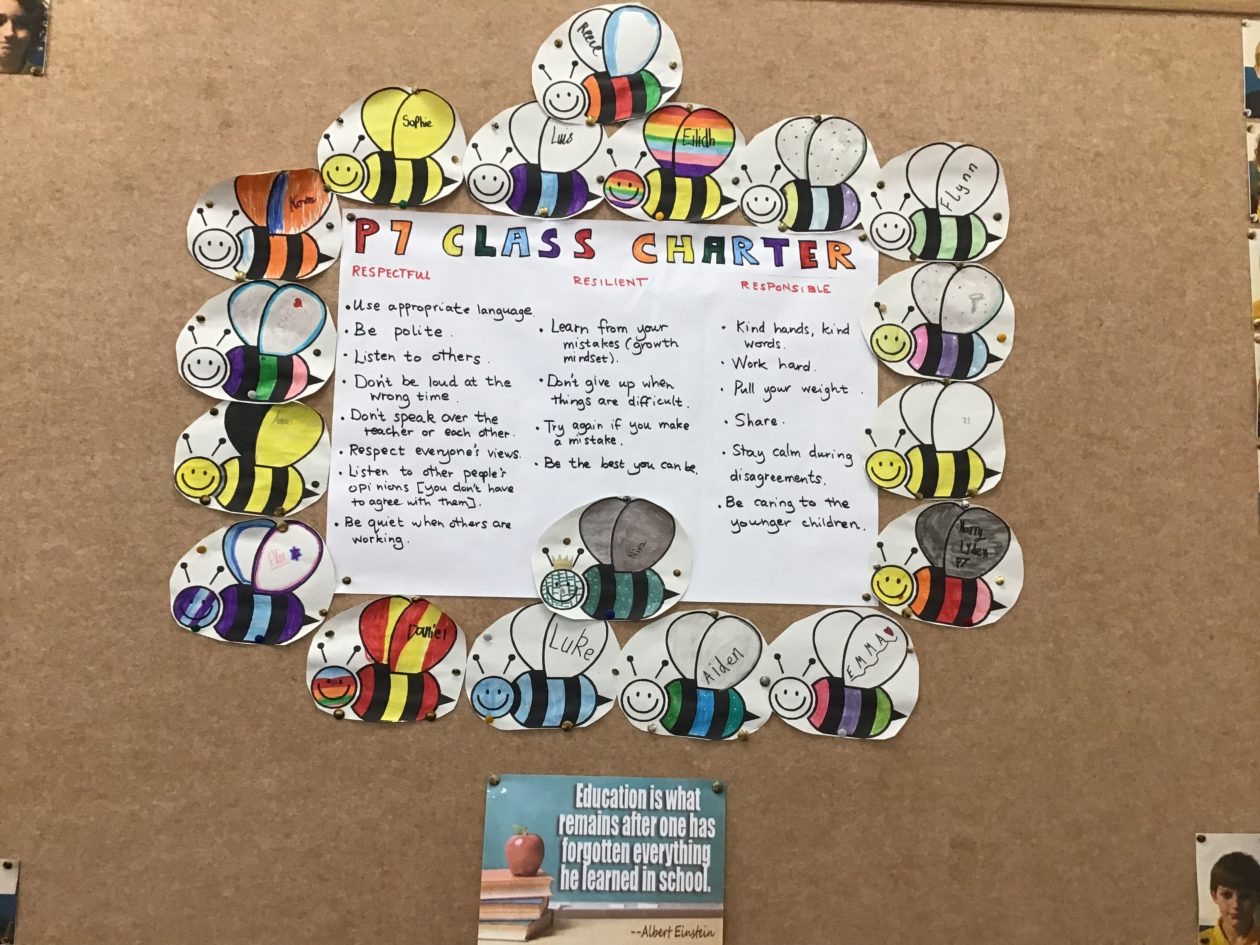 Reece
Sophie
Luis
Eilidh
Flynn
P7 CLASS CHARTER
RESPECTFUL
• Use appropriate language.
• Be polite.
• Listen to others.
• Don't be loud at the
wrong time.
• Don't speak over the
teacher or each other.
• Respect everyone's views.
• Listen to other people's
opinions [you don't have
to agree with them].
• Be quiet when others are
working.
RESILIENT
• Learn from your
mistakes (growth
mindset).
• Don't give up when
things are difficult.
• Try again if you make
a mistake.
• Be the best you can be.
RESPONSIBLE
• Kind hands, kind
words.
• Work hard.
• Pull your weight.
• Share.
• Stay calm during
disagreements.
• Be caring to the
younger children.
Harry
Lyden
P7
Daniel
Luke
Aiden
EMMA
Education is what
remains after one has
forgotten everything
he learned in school.
--Albert Einstein